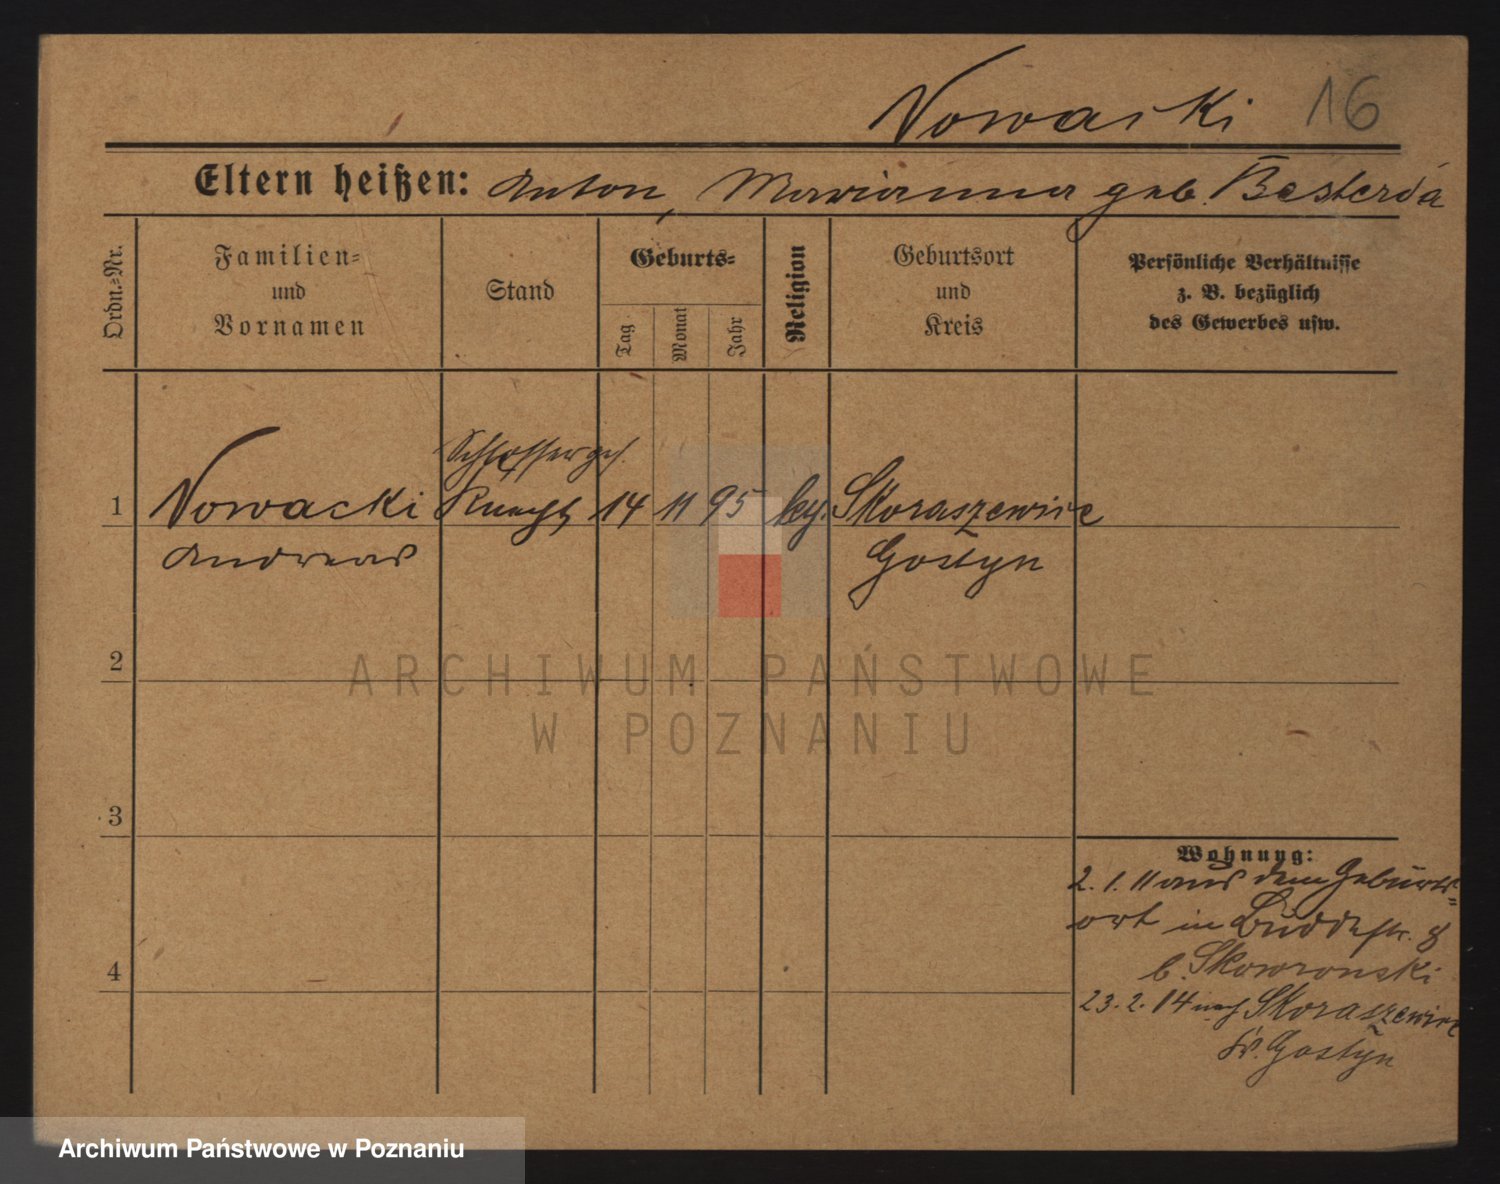 Nowacki 16
Eltern heißen: Anton, Marianna geb. Besterda
Ordn.-Nr.
Familien-
und
Vornamen
Stand
Geburts-
Tag
Monat
Jahr
Religion
Geburtsort
und
Kreis
Persönliche Verhältnisse
z. B. bezüglich
des Gewerbes usw.
Schlosserges.
1 Nowacki Knecht 14 11 95 Skoraszewice
Andreas Gostyn
2
3
4
Wohnung:
2. 1. 11 aus dem Geburts-
ort in Buddestr. 8
b. Skowronski
23. 2. 14 nach Skoraszewice
Kr. Gostyn
ARCHIWUM PAŃSTWOWE
W POZNANIU
Archiwum Państwowe w Poznaniu